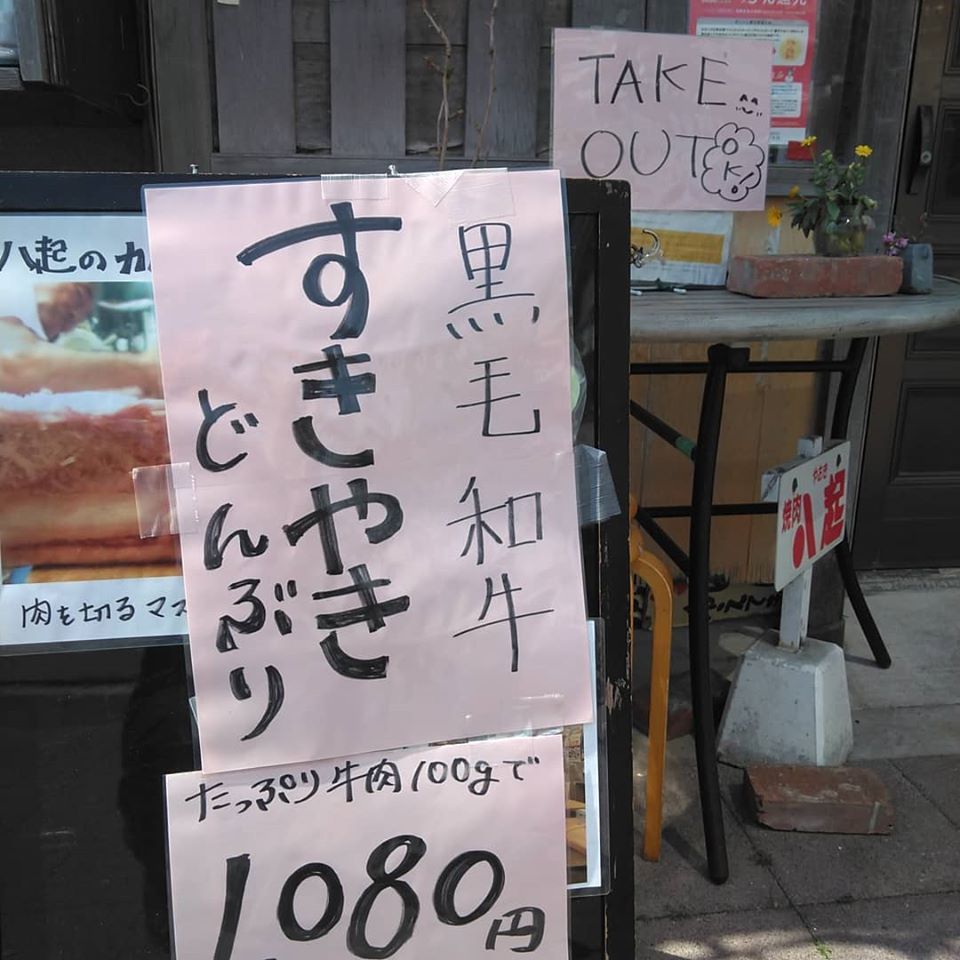 黒毛和牛
すきやき
どんぶり
たっぷり牛肉100gで
1,080円
TAKE
OUT OK!
八起のカ
肉を切るマス
焼肉
やおき
八起